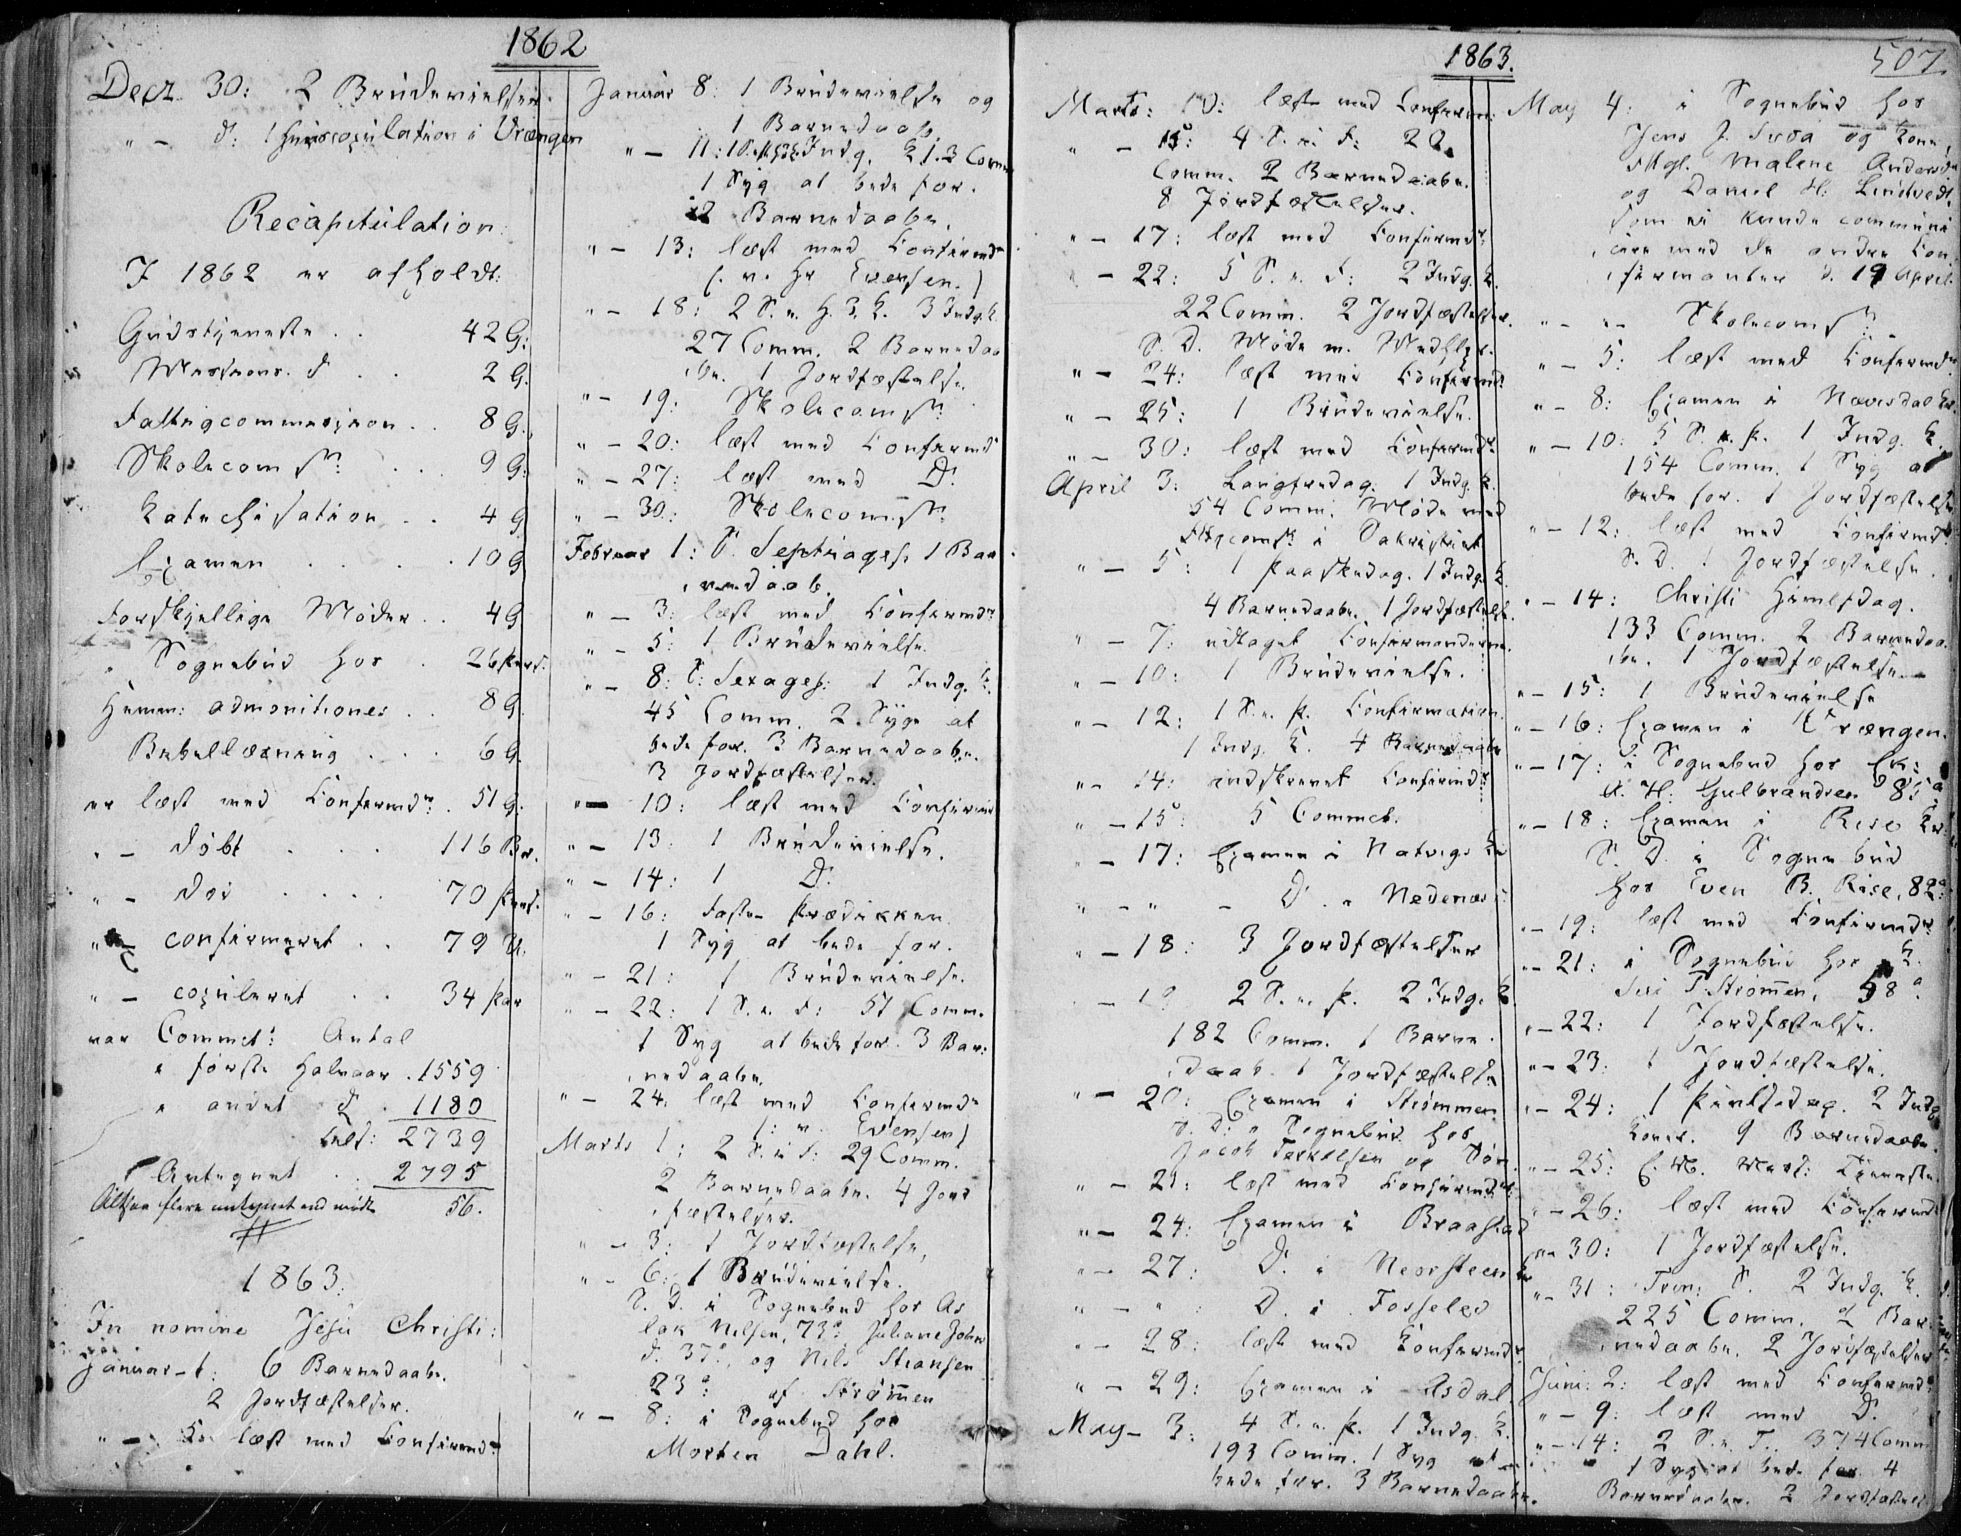 1862
Decr 30: 2 Brudevielser.
" - d: 1 Huuscopulation i Vrængen
Recapitulation.
I 1862 er afholdt:
Gudstjeneste . . 42 G:
Missions. d . . 2 G.
Fattigcommission . . 8 G.
Skolecomsn: . . . 9 G.
Katechisation . . 4 G
Examen . . . . 10 G
Forskjellige Møder . . 4 G
i Sognebud hos . 26 Pers:
Hemm: admonitiones . . 8 G.
Bibellæsning . . . 6 G.
er læst med Confirmdr: . 51 G.
" - døbt . . . 116 Br.
" - død . . . . 70 Pers.
" - confirmeret . . 79 U.
" - copuleret . . 34 Par
var Commct: Antal
i første Halvaar . 1559
i andet d . 1180
Tils: 2739
Antegnet . . 2795
Altsaa flere antegnet end mødte 56.
1863.
In nomine Jesu Christi:
Januar - 1: 6 Barnedaabe.
2 Jordfæstelser.
" - læst med Confirmdr
Januar 8: 1 Brudevielse og
1 Barnedaab.
" - 11: Indg. K. Comm.
1 Syg at bede for.
2 Barnedaabe.
" - 13: læst med Confirmdr
(: v. Hr Eversen.)
" - 18: 2 S. e. H. 3. K. 3 Indg. K.
27 Comm. 2 Barnedaa
be. 1 Jordfæstelse.
" - 19: Skolecomsn:
" - 20: læst med Confirmdr
" - 27: læst med D:
" - 30: Skolecomsn:
Februar 1: S. Septuages. 1 Bar
nedaab.
" - 3: læst med Confirmdr
" - 5: 1 Brudevielse.
" - 8: S: Sexages: 1 Indg. K.
45 Comm. 2 Syge at
bede for. 3 Barnedaabe.
3 Jordfæstelser.
" - 10: læst med Confirmdr
" - 13: 1 Brudevielse.
" - 14: 1 D:
" - 16: Faste Prædikken
1 Syg at bede for.
" - 21: 1 Brudevielse.
" - 22: 1 S. i F: 51 Comm.
1 Syg at bede for. 3 Bar:
nedaabe.
" - 24. læst med Confirmdr
(: v. Evensen)
Marts 1: 2 S. i F: 29 Comm.
2 Barnedaabe. 4 Jord
fæstelser.
" - 3: 1 Jordfæstelse,
" - 6: 1 Brudevielse.
S. D. i Sognebud hos As
lak Nilsen, 73a, Juliane John
d. 37a, og Nils Stiansen
23a: af Strømmen
" - 8: i Sognebud hos
Morten Dahl.
1863.
507
Marts: 10: læst med Confirm:
" - 15: 4 S. i F: 22
Comm. 2 Barnedaabe.
8 Jordfæstelser.
" - 17: læst med Confirmdr:
" - 22: 5 S. i F: 2 Indg. K.
22 Comm. 2 Jordfæstelser.
S. D. Møde m. Medhlp.
" - 24: læst med Confirmdr
" - 25: 1 Brudevielse.
" - 30: læst med Confirmdr
April 3: Langfredag. 1 Indg. K.
54 Comm. Møde med
i Sakristiet
" - 5: 1 Paaskedag. 1 Indg. K.
4 Barnedaabe. 1 Jordfæstelse.
" - 7: udtaget Confirmanderne.
" - 10: 1 Brudevielse.
" - 12: 1 S. e. P. Confirmation.
1 Indg. K. 4 Barnedaabe
" - 14: indskrevet Confirmdr
" - 15: 5 Commct.
" - 17: Examen i Natvigs Kr
" - " - D. i Nedenæs:
" - 18: 3 Jordfæstelser
" - 19 2 S. e. P. 2 Indg. K.
182 Comm. 1 Barne
daab. 1 Jordfæstelse
" - 20: Examen i Strømmen
S. D. i Sognebud hos
Jacob Terkelsen og Søn.
" - 21: læst med Confirmdr:
" - 24: Examen i Braastad
" - 27: D. i Neersteen Kr
" - " : D. i Fosseled
" - 28: læst med Confirmdr
" - 29: Examen i Asdal.
May - 3: 4 S. e. P. 1 Indg. K.
193 Comm. 1 Syg at
bede for. 3 Barnedaabe.
May 4: i Sognebud hos
Jens J. og Kone,
Malene Andersdr
og Daniel H:
som ei kunde communi
cere med de andre Con
firmanter d. 19 April.
" - " - Skolecomsn:
" - 5: læst med Confirmdr
" - 8: Examen i Næversdal Kr.
" - 10: 5 S. e. P. 1 Indg. K.
154 Comm. 1 Syg at
bede for. 1 Jordfæstelse
" - 12: læst med Confirmdr.
S. D. 1 Jordfæstelse.
" - 14: Christi Himlfdag.
133 Comm. 2 Barnedaa
be. 1 Jordfæstelse.
" - 15: 1 Brudevielse
" - 16: Examen i Vrængen.
" - 17: i Sognebud hos
H: Gulbrandsen 85a
" - 18: Examen i Rise Kr:
S. D. i Sognebud
hos Even B. Rise, 82a:
" - 19: læst med Confirmdr
" - 21: i Sognebud hos K.
Siri T. Strømmen, 58a.
" - 22: 1 Jordfæstelse.
" - 23: 1 Jordfæstelse.
" - 24: 1 Pintsedag. 2 Indg
Koner. 9 Barnedaabe.
" - 25: Tjeneste.
" - 26: læst med Confirmdr
" - 30: 1 Jordfæstelse.
" - 31: Trin: S. 2 Indg. K.
225 Comm. 2 Bar:
nedaabe. 2 Jordfæstelser
Juni: 2: læst med Confirmdr
" - 9: læst med D.
" - 14: 2 S. e. T. 374 Comm
1 Syg at bede for. 4
Barnedaabe. 2 Jordfæstels